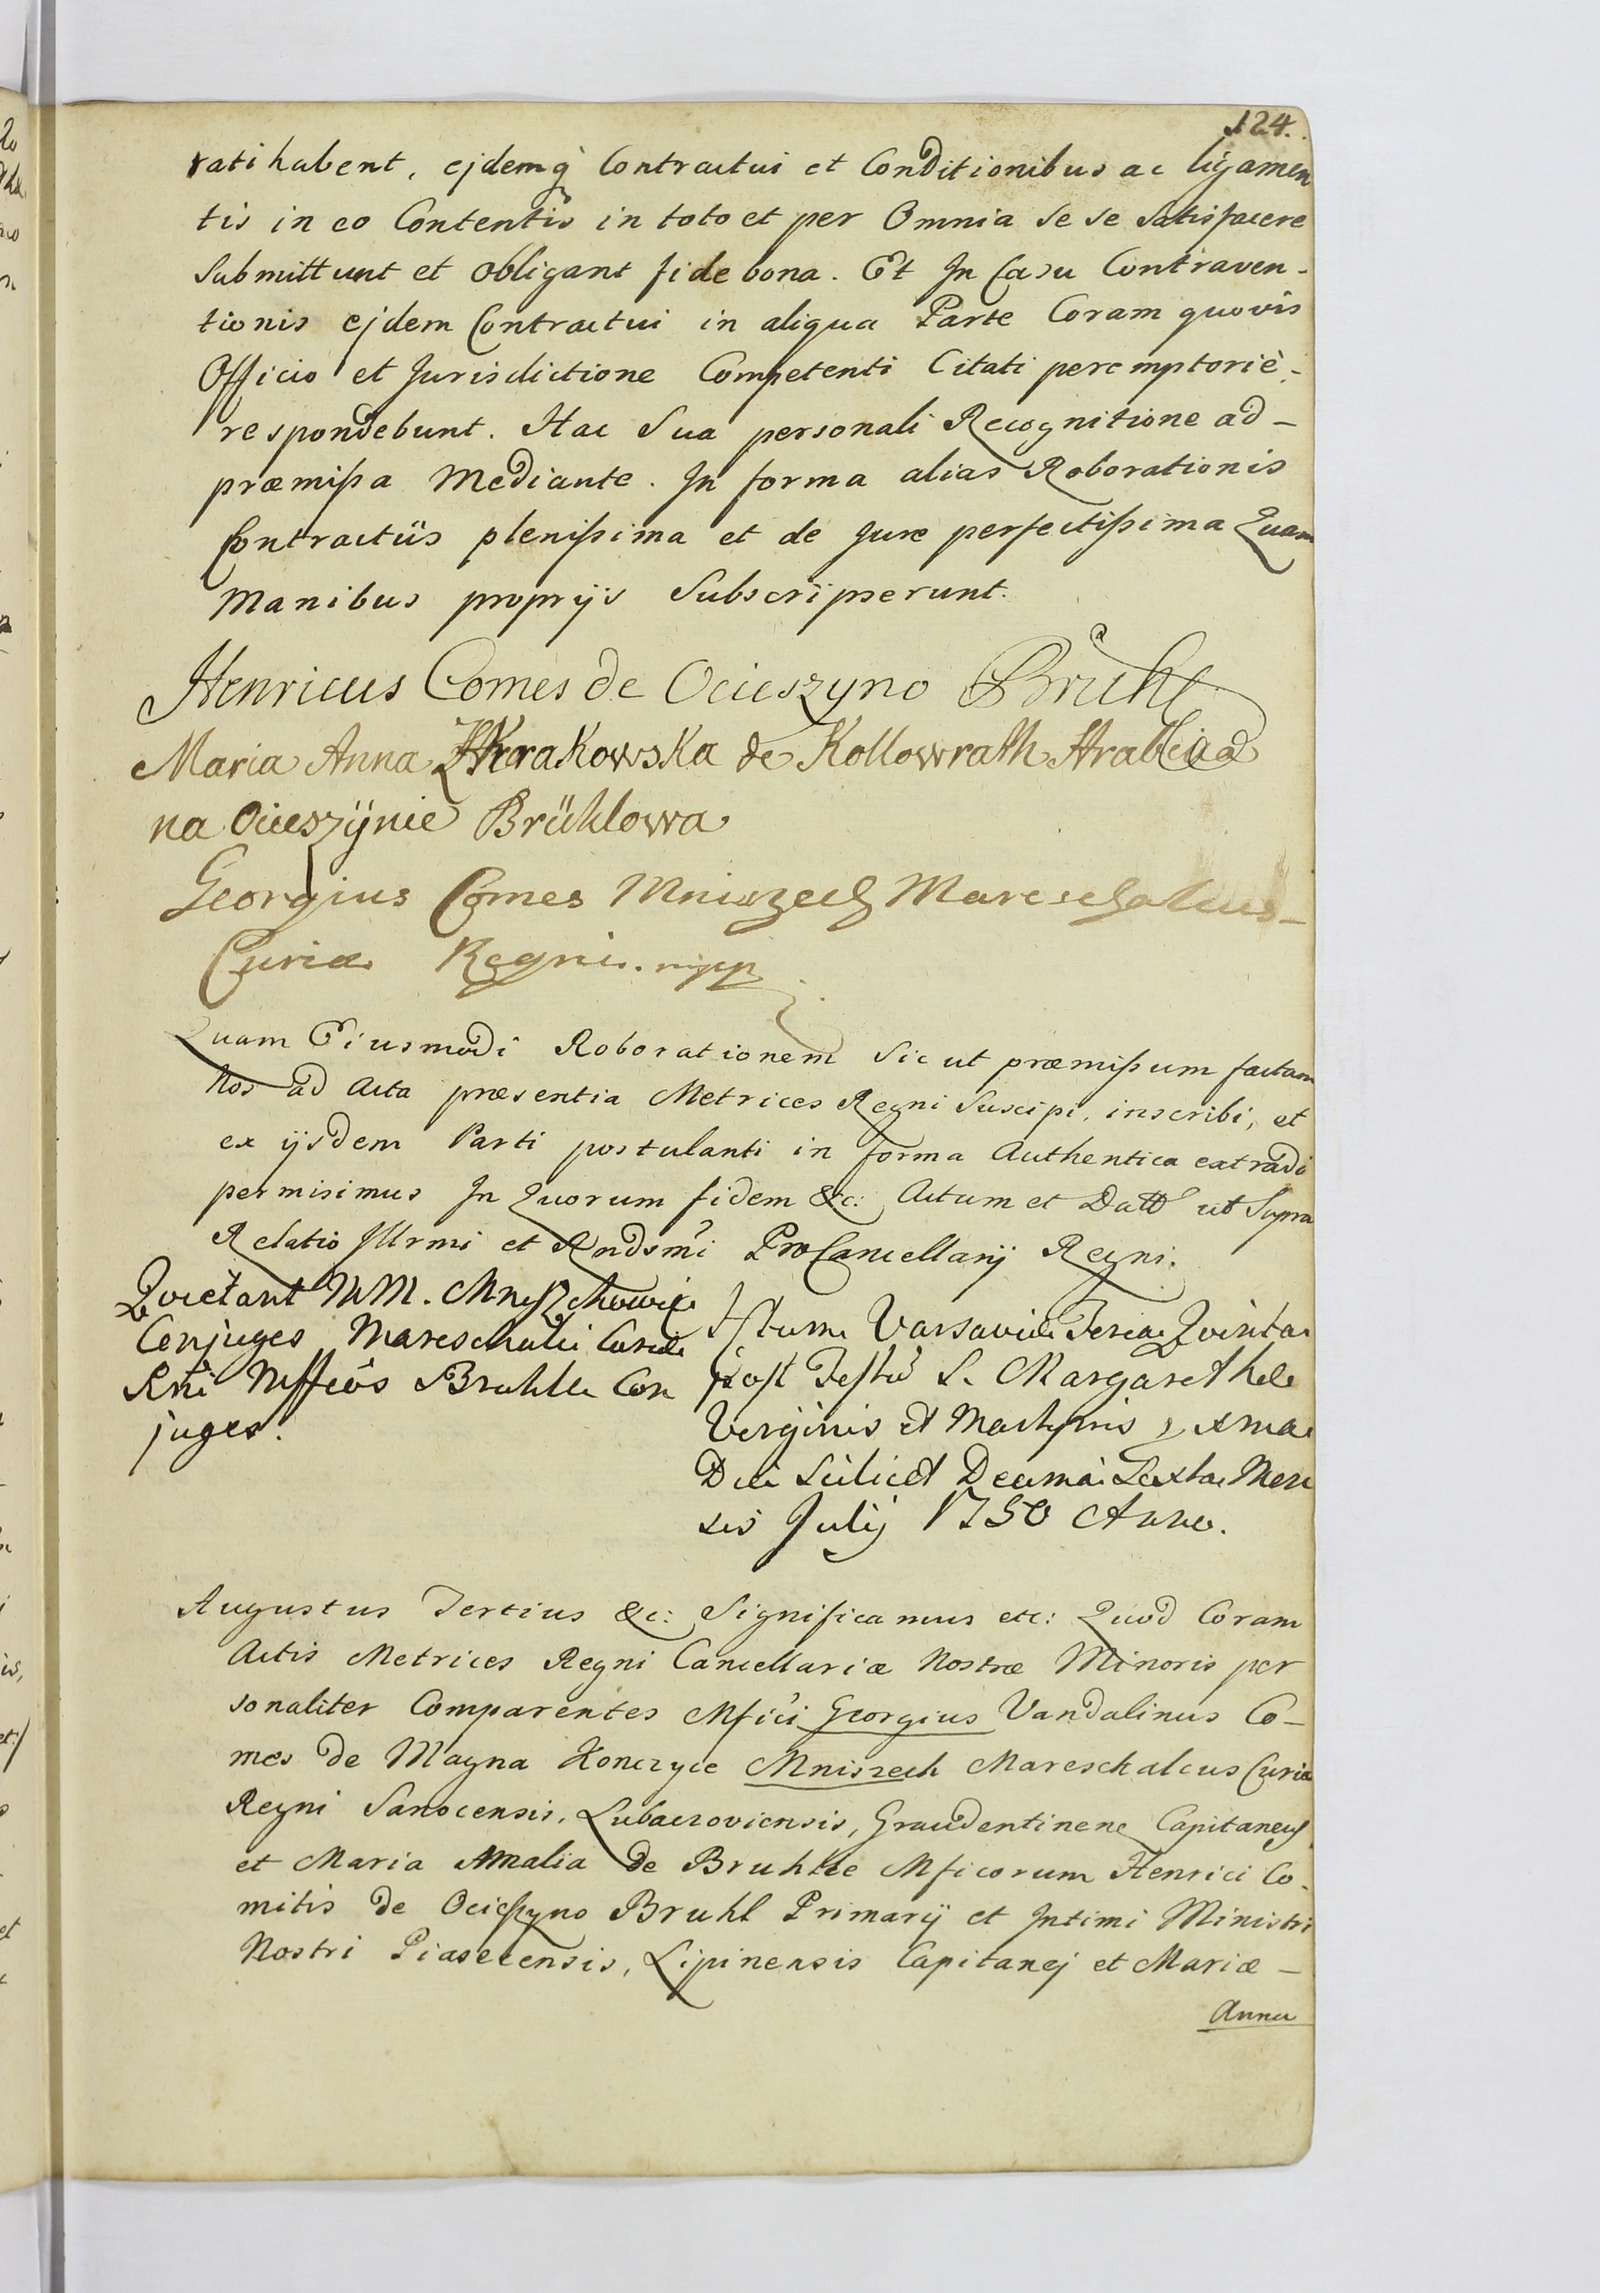 124.
ratihabent, ejdemq̀ Contractui et Conditionibus ac ligamen
tis in eo Contentis in toto et per Omnia se se satisfacere
Submittunt et obligant fide bona. Et In Casu Contraven-
tionis ejdem Contractui in aliqua Parte Coram quovis
Officio et Jurisdictione Competenti Citati peremptoriè -
respondebunt. Hac Sua personali Recognitione ad -
præmißa Mediante. In forma alias Roborationis
Contractûs plenißima et de Jure perfectißima Quam
Manibus proprijs Subscripserunt.
Henricus Comes de Ocieszyno Brühl
Maria Anna Krakowska de Kollowrath Hrabina
na Ocieszÿnie Brühlowa
Georgius Comes Mniszech Mareschalcus -
Curiæ Regni. mpp
Quam Eiusmodi Roborationem Sic ut præmißum factam
Nos ad Acta præsentia Metrices Regni Suscipi, inscribi, et
ex ijsdem Parti postulanti in forma Authentica extradi
permisimus In Quorum fidem &c: Actum et Datt ut Supra
Relatio Illrmi et Rndsmi ProCancellarij Regni.
Quietant MM. Mnyszchowie
Conjuges Mareschalci Curiæ
Rni Mfficôs Bruhlle Con
juges.
Actum Varsaviæ Feria Quinta
post Festũ S. Margarethæ
Virginis et Martyris
Die Scilicet Decima Sexta Men
sis Julij 1750 Anno.
Augustus Tertius &c: Significamus etc: Quod Coram
Actis Metrices Regni Cancellariæ Nostræ Minoris per
sonaliter Comparentes Mfici Georgius Vandalinus Co-
mes de Magna Konczyce Mniszech Mareschalcus Curiæ
Regni Sanocensis, Lubaczoviensis, Graudentinenc Capitaneus
et Maria Amalia de Bruhlle Mficorum Henrici Co-
mitis de Ocieszyno Bruhl Primarij et Intimi Ministri
Nostri Piasecensis, Lipinensis Capitanej et Mariæ -
Annæ